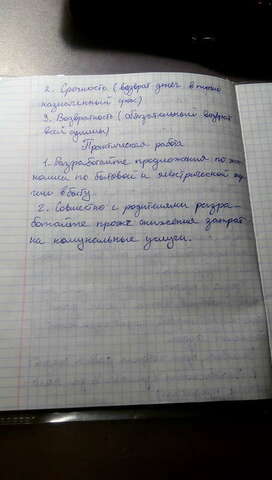 2. Срочность (возврат денег в точно
назначенный срок)
3. Возвратность (обязательный возврат
всей суммы)
Практическая работа
1. Разработайте предложения по эко-
номии по бытовой и электрической эн
гии в быту.
2. Совместно с родителями разра-
ботайте проже снижения затрат
на комунальные услуги.